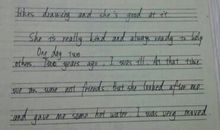 likes drawing and she's good at it
She is really kind and always ready to help
One day two
others. two years ago, I was ill. At that time
we are some not friends. But she looked after me
and gave me some hot water. I was very moved